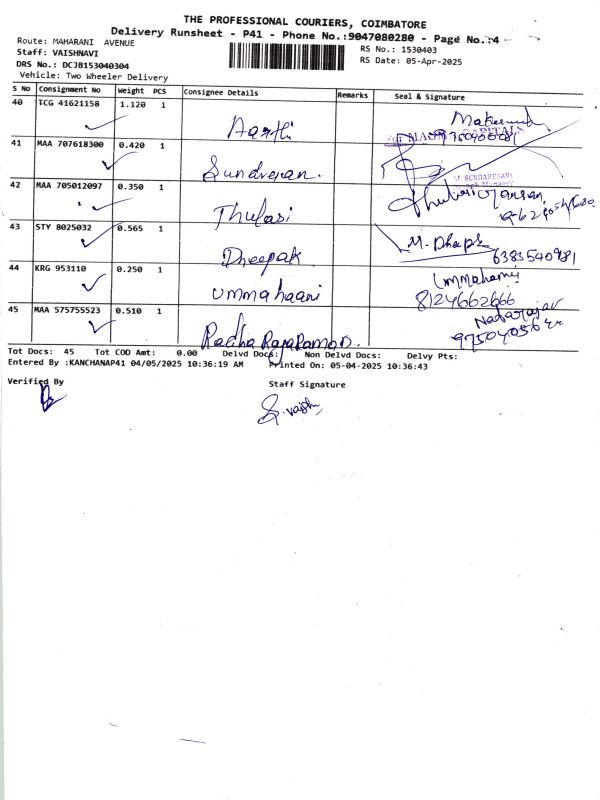 THE PROFESSIONAL COURIERS, COIMBATORE
Delivery Runsheet - P41 - Phone No.:9047080280 - Page No.:4
Route: MAHARANI AVENUE
RS No.: 1530403
Staff: VAISHNAVI
RS Date: 05-Apr-2025
DRS No.: DCJB153040304
Vehicle: Two Wheeler Delivery
S No Consignment No Weight PCS Consignee Details Remarks Seal & Signature
40 TCG 41621158 1.120 1 Aarthi
MAGMA CAPITALS
41 MAA 707618300 0.420 1 Sundresan.
M SUNDARESAN
42 MAA 705012097 0.350 1 Thulasi
43 STY 8025032 0.565 1 Dheepak M. Dheepk 6383540981
44 KRG 953110 0.250 1 ummahaani Ummahami
8124662666
45 MAA 575755523 0.510 1 Radha Rajaraman. Natarajar
Tot Docs: 45 Tot COD Amt: 0.00 Delvd Docs: Non Delvd Docs: Delvy Pts:
Entered By :KANCHANAP41 04/05/2025 10:36:19 AM Printed On: 05-04-2025 10:36:43
Verified By Staff Signature
S. vaish